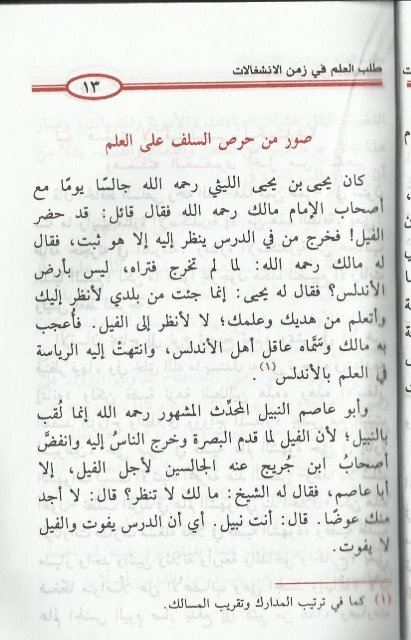 طلب العلم في زمن الانشغالات
١٣
صور من حرص السلف على العلم
كان يحيى بن يحيى الليثي رحمه الله جالسًا يومًا مع
أصحاب الإمام مالك رحمه الله فقال قائل: قد حضر
الفيل! فخرج من في الدرس ينظر إليه إلا هو ثبت، فقال
له مالك رحمه الله: لما لم تخرج فتراه، ليس بأرض
الأندلس؟ فقال له يحيى: إنما جئت من بلدي لأنظر إليك
وأتعلم من هديك وعلمك؛ لا لأنظر إلى الفيل. فأُعجب
به مالك وسَمَّاه عاقل أهل الأندلس، وانتهتْ إليه الرياسة
في العلم بالأندلس(١).
وأبو عاصم النبيل المحدِّث المشهور رحمه الله إنما لُقب
بالنبيل؛ لأن الفيل لما قدم البصرة وخرج الناسُ إليه وانفضَّ
أصحابُ ابن جُريج عنه الجالسين لأجل الفيل، إلا
أبا عاصم، فقال له الشيخ: ما لك لا تنظر؟ قال: لا أجد
منك عوضًا. قال: أنت نبيل. أي أن الدرس يفوت والفيل
لا يفوت.
(١) كما في ترتيب المدارك وتقريب المسالك.